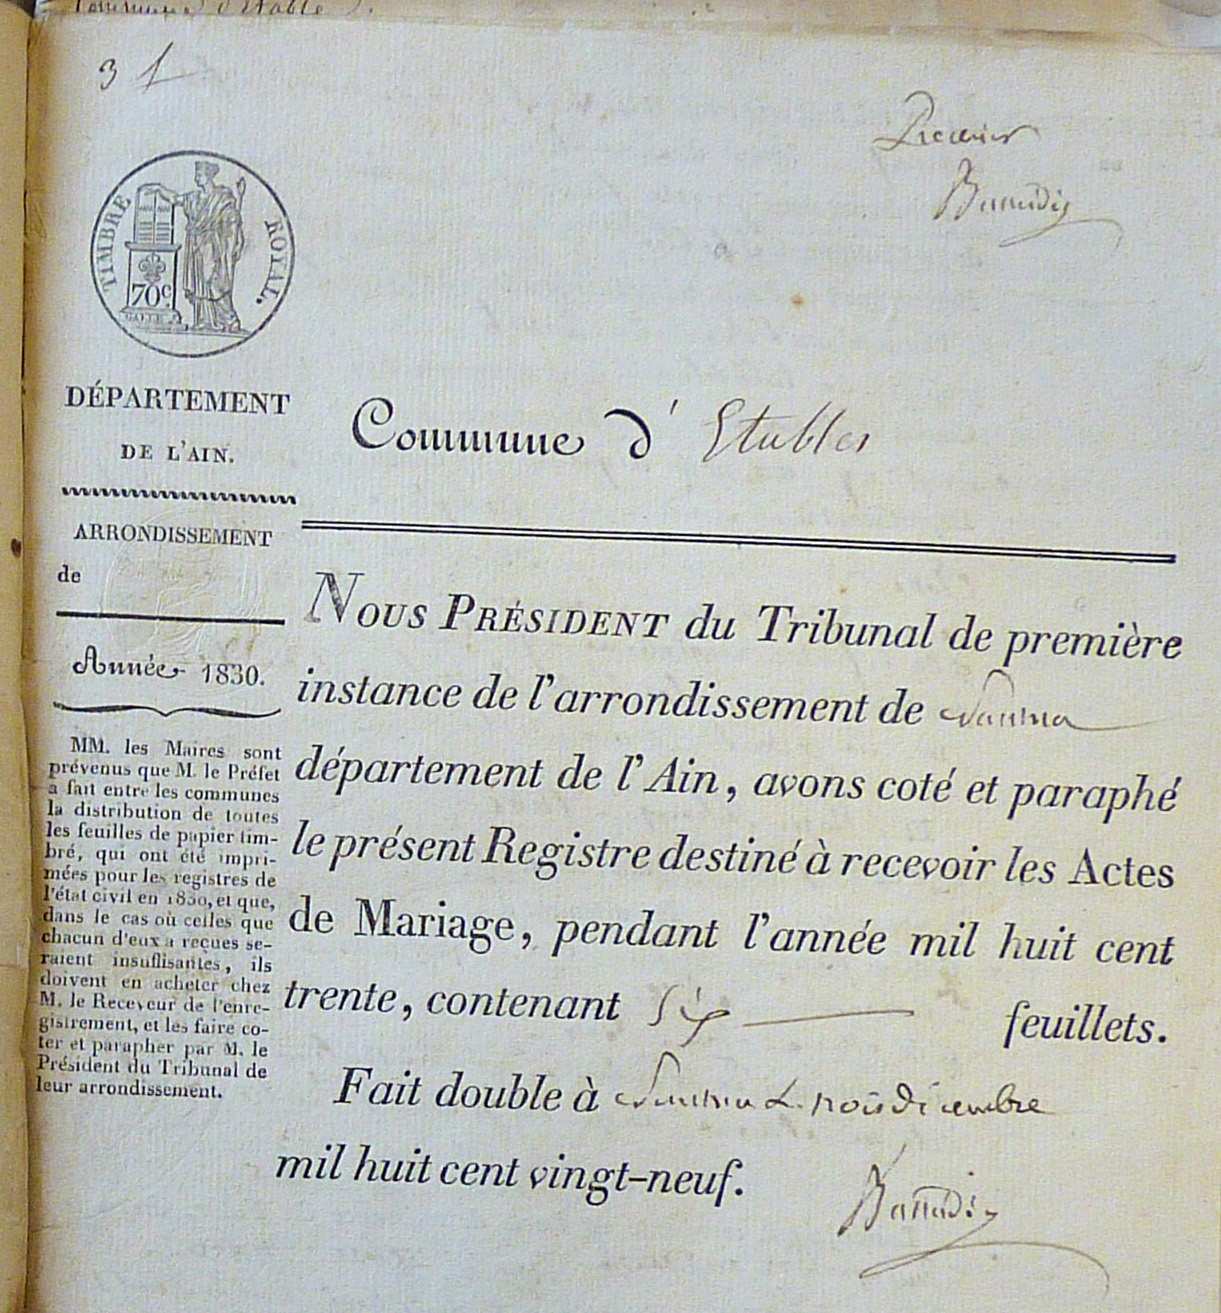 3
Premier
TIMBRE ROYAL.
70c.
DÉPARTEMENT
DE L'AIN.
Commune d'Etables
ARRONDISSEMENT
de
Année 1830.
MM. les Maires sont
prévenus que M. le Préfet
a fait entre les communes
la distribution de toutes
les feuilles de papier tim-
bré, qui ont été impri-
mées pour les registres de
l'état civil en 1830, et que,
dans le cas où celles que
chacun d'eux a reçues se-
raient insuffisantes, ils
doivent en acheter chez
M. le Receveur de l'enre-
gistrement, et les faire co-
ter et parapher par M. le
Président du Tribunal de
leur arrondissement.
NOUS PRÉSIDENT du Tribunal de première
instance de l'arrondissement de Nantua
département de l'Ain, avons coté et paraphé
le présent Registre destiné à recevoir les Actes
de Mariage, pendant l'année mil huit cent
trente, contenant six feuillets.
Fait double à Nantua décembre
mil huit cent vingt-neuf.